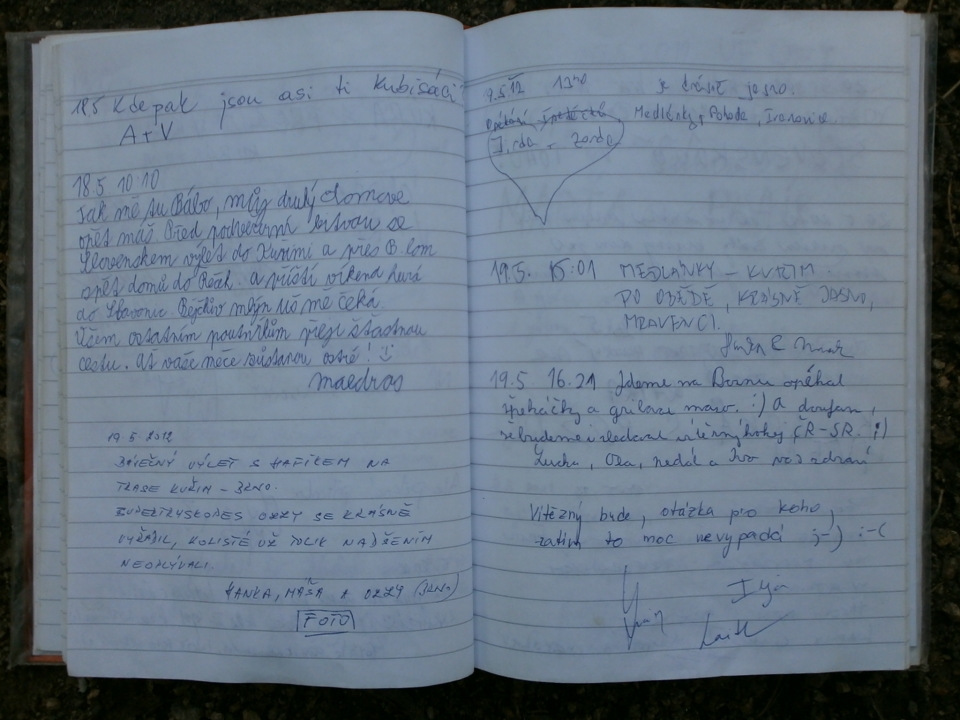 18.5 Kdepak jsou asi ti Kubišáci
A+V
18.5 10 10
Jak mě tu Bábo, můj druhý domove
opět máš. Před podvečerní bitvou se
Slovenskem výlet do Kuřimi a přes B. lom
opět domů do Řečk. a příští víkend hurá
do Slavonic Bejčkův mlýn už mě čeká
Všem ostatním poutníkům přeji šťastnou
cestu. Ať vaše meče zůstanou ostré! :)
Maedros
19.5 2012
BÁJEČNÝ VÝLET S HAFÍKEM NA
TRASE KUŘIM - BRNO.
SUPERTRYSKOPES OZZY SE KRÁSNĚ
VYŘÁDIL, KOLISTÉ UŽ TOLIK NADŠENÍM
NEOPLÝVALI.
HANKA, MÁŠA A OZZY (BRNO)
FOTO
9.5 12 13:40 je krásně jasno.
Medlánky, Pohoda, Ivanovice.
Jirda
19.5. 15:01 MEDLÁNKY - KUŘIM
PO OBĚDĚ, KRÁSNĚ JASNO,
MRAVENCI.
19.5 16.21 Jdeme na Baranu opékat
špekáčky a grilovat maso. :) A doufam,
že budeme sledovat vítězný hokej ČR-SR. ;)
Lucka, nedál a Ivo vás zdraví
Vítězný bude, otázka pro koho,
zatím to moc nevypadá ;-) :-(